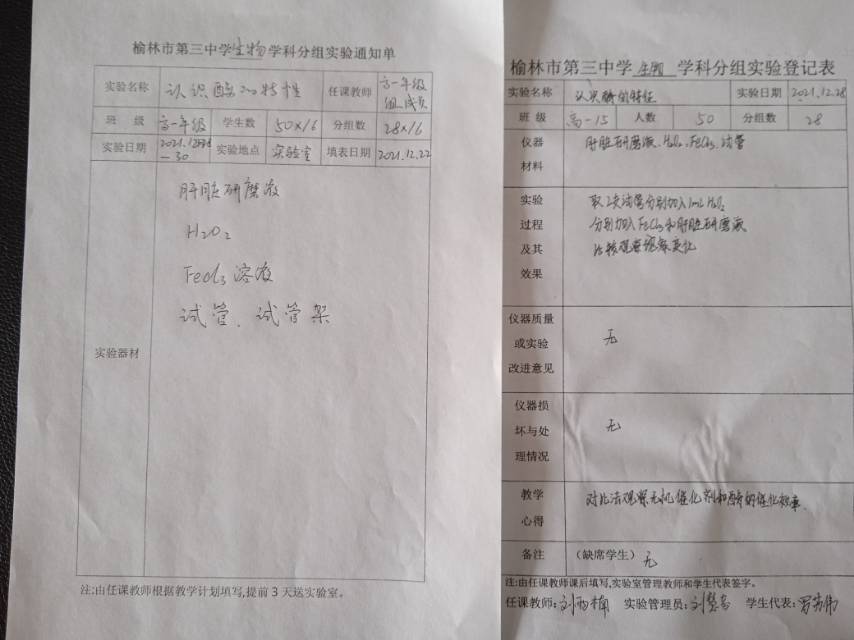 榆林市第三中学生物学科分组实验通知单
实验名称 认识酶的特性 任课教师 高一年级组成员
班 级 高一年级 学生数 50×16 分组数 28×16
实验日期 2021.12 —30 实验地点 实验室 填表日期 2021.12.22
实验器材
肝脏研磨液
H2O2
FeCl3溶液
试管、试管架
注:由任课教师根据教学计划填写,提前3天送实验室。
榆林市第三中学 生物 学科分组实验登记表
实验名称 认识酶的特征 实验日期 2021.12.28
班 级 高一15 人数 50 分组数 28
仪器材料 肝脏研磨液、H2O2、FeCl3、试管
实验过程及其效果
取2支试管分别加入1mL H2O2
分别加入FeCl3和肝脏研磨液
比较观察现象变化
仪器质量或实验改进意见 无
仪器损坏与处理情况 无
教学心得 对比法观察无机催化剂和酶的催化效率
备注 (缺席学生) 无
注:由任课教师课后填写,实验室管理教师和学生代表签字。
任课教师: 实验管理员: 学生代表: